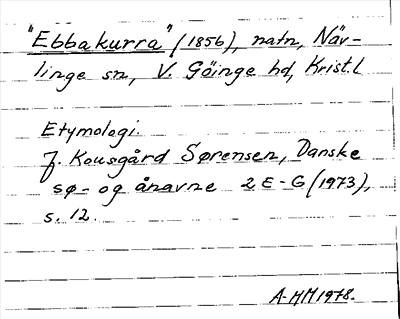 "Ebbakurra" (1856), natn, Näv-
linge sn, V. Göinge hd, Krist. l
Etymologi.
J. Kousgård Sørensen, Danske
sø- og ånavne 2 E-G (1973),
s. 12.
A-MM 1978.